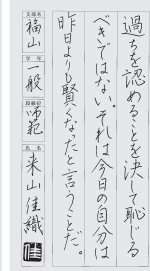 過ちを認めることを決して恥じる
べきではない。それは今日の自分は
昨日よりも賢くなったと言うことだ。
支部名
福山
学年
一般
段級位
師範
氏名
来山佳織
佳